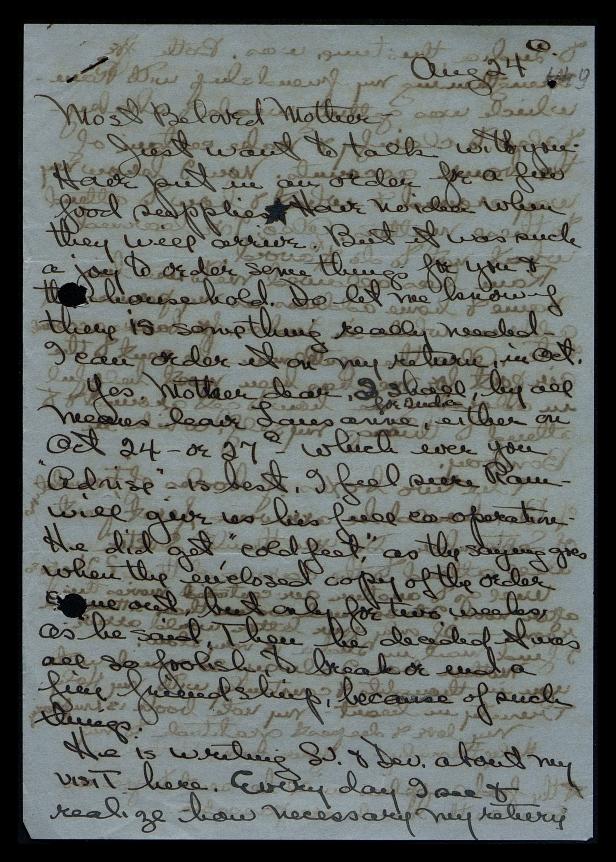 Aug 24th
149
Most Beloved Mother -
Just want to talk with you.
Have put in an order for a few
food supplies Have no idea when
they will arrive. But it was such
a joy to order some things for you &
the household. Do let me know if
there is something really needed -
I can order it on my return, in Oct.
Yes, Mother dear, I shall, by all
for India
means leave Lausanne, either on
Oct 24 - or 27th which ever you
"Advise" is best. I feel sure Ram -
will give us his full co-operation -
He did get "cold feet", as the saying goes
when the enclosed copy of the order
came out, but only for two weeks,
as he said, Then he decided it was
all so foolish, to break or end a
fine friendship, because of such
things.
He is writing S. & Dev. about my
visit here. Every day I see &
realize how necessary my return